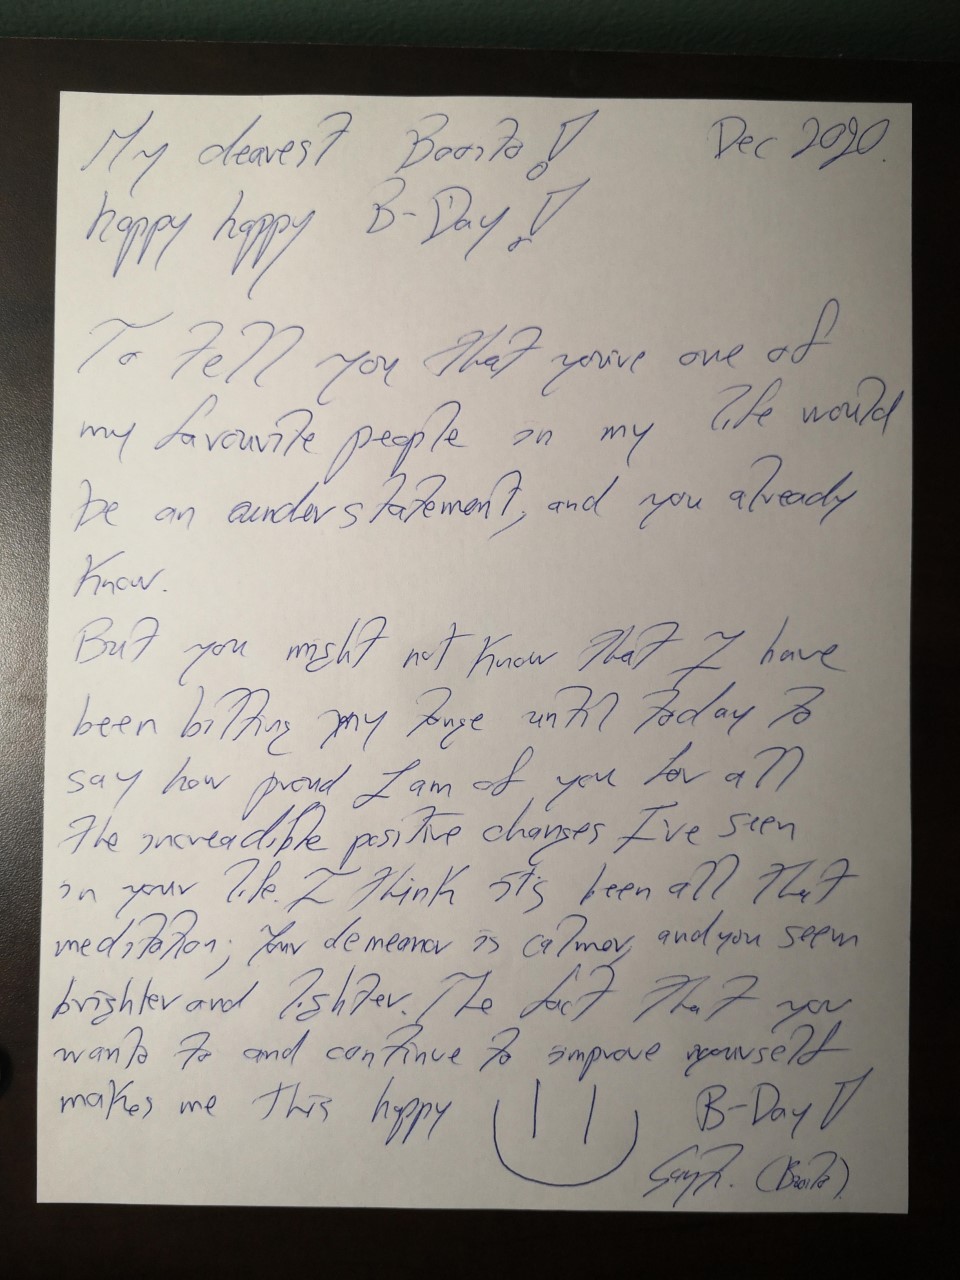 My dearest Baoita! Dec 2020.
happy happy B-Day!
To tell you that you're one of
my favourite people in my life would
be an understatement, and you already
know.
But you might not know that I have
been bitting my tonge until today to
say how proud I am of you for all
the increadible positive changes I've seen
in your life. I think it's been all that
meditation; Your demeanor is calmer, and you seem
brighter and lighter. The fact that you
want to to and continue to improve yourself
makes me this happy B-Day!